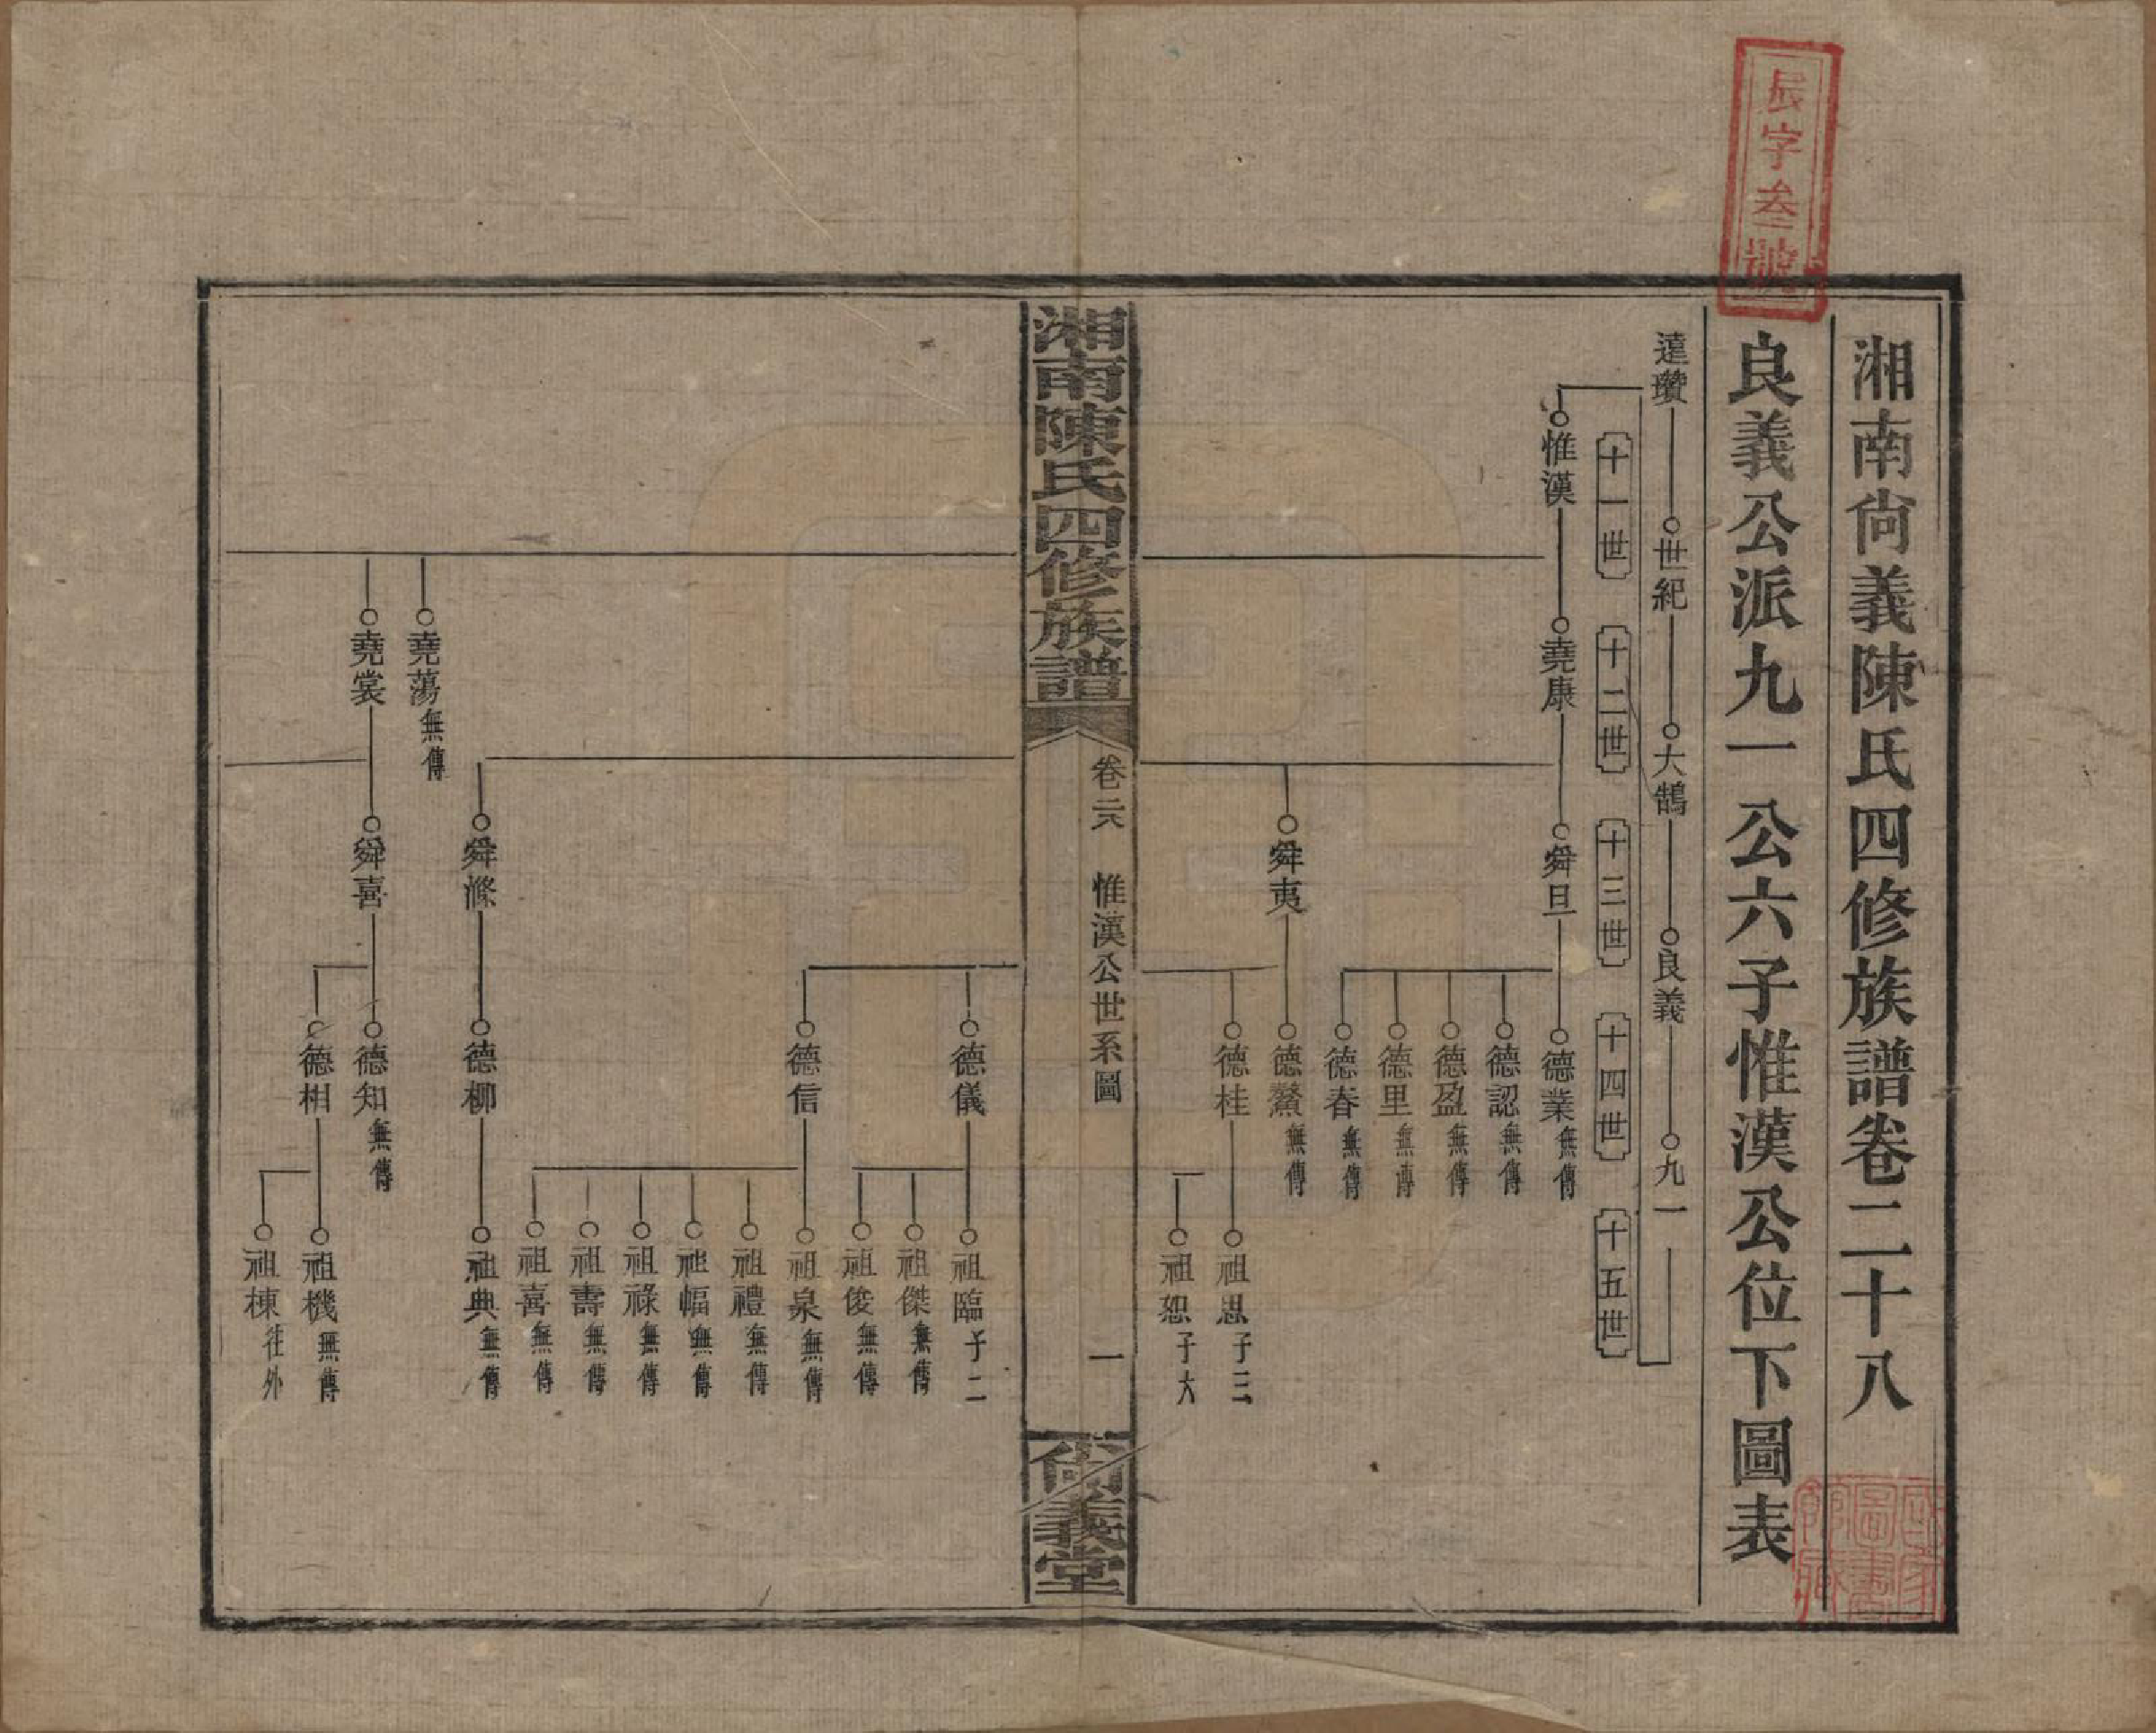 辰字叁號
湘南尙義陳氏四修族譜卷二十八
良義公派九一公六子惟漢公位下圖表
達瓚
世紀
大鵠
良義
九一
十一世
十二世
十三世
十四世
十五世
惟漢
堯康
舜旦
德業無傳
德認無傳
德盈無傳
德里無傳
德春無傳
舜夷
德鰲無傳
德桂
祖思子三
祖恕子六
湘南陳氏四修族譜
卷二十八
惟漢公世系圖
一
尙義堂
德儀
祖臨子二
祖傑無傳
祖俊無傳
德信
祖泉無傳
祖禮無傳
祖幅無傳
祖祿無傳
祖壽無傳
祖喜無傳
舜滌
德柳
祖典無傳
堯蕩無傳
堯裳
舜喜
德知無傳
德相
祖機無傳
祖棟往外